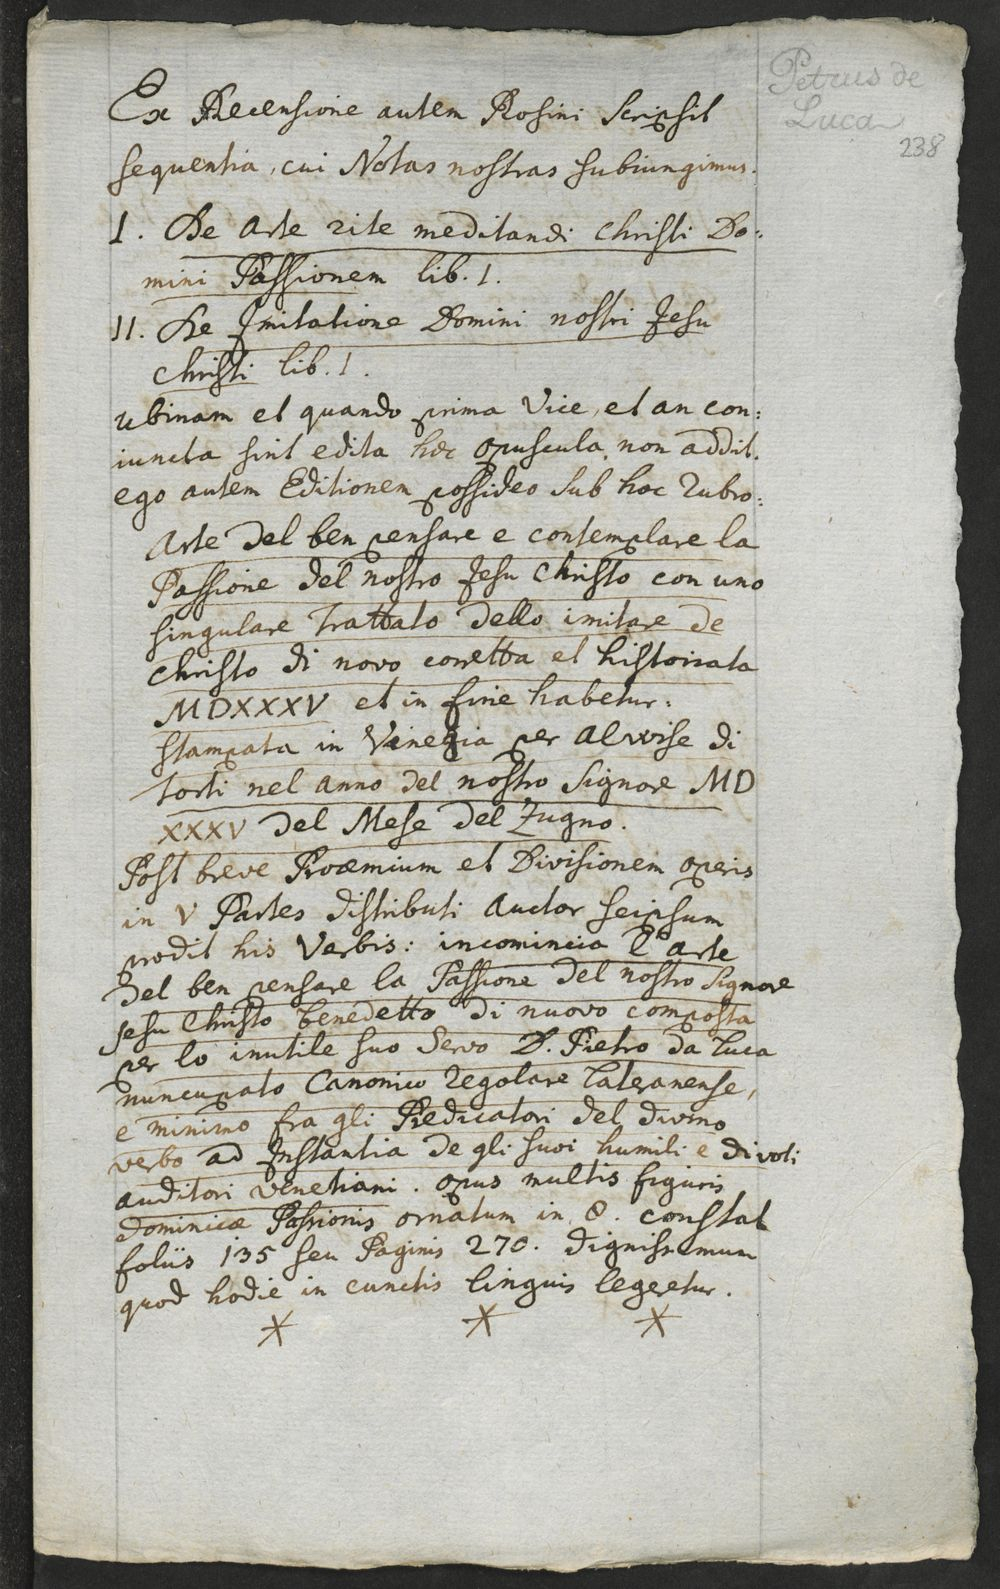 Petrus de
Luca
238
Ex Recensione autem Rosini scripsit
sequentia, cui Notas nostras subiungimus.
I. De Arte rite meditandi Christi Do:
mini Passionem lib. 1.
II. De Imitatione Domini nostri Jesu
Christi lib. 1.
ubinam et quando prima Vice, et an con:
iuncta sint edita hæc opuscula, non addit.
ego autem Editionem possideo sub hoc Rubro:
Arte del ben pensare e contemplare la
Passione del nostro Jesu Christo con uno
singulare Trattato dello imitare de
Christo di novo corretta et historiata
MDXXXV et in fine habetur:
stampata in Venegia per Alwise di
Torti nel anno del nostro Signore MD
XXXV del Mese del Zugno.
Post breve Proœmium et Divisionem operis
in V Partes distributi Auctor seipsum
prodit his Verbis: incomincia l'arte
del ben pensare la Passione del nostro Signore
Jesu Christo benedetto di nuovo composta
per lo inutile suo Servo D. Pietro da Luca
nuncupato Canonico Regolare Lateranense,
e minimo fra gli Predicatori del divino
verbo ad Instantia de gli suoi humili e divoti
auditori Venetiani. opus multis figuris
Dominicæ Passionis ornatum in 8. constat
foliis 135 seu Paginis 270. dignissimum
quod hodie in cunctis linguis legeretur.
* * *